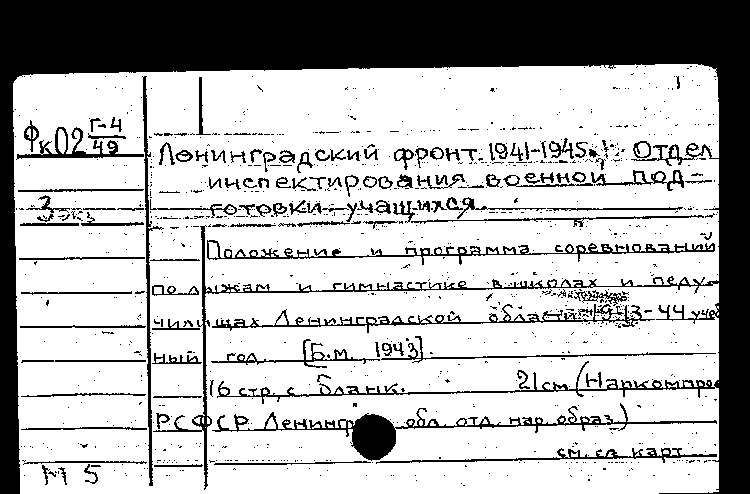 Фк02 Г-4
49
3 экз
Ленинградский фронт. 1941-1945. Отдел
инспектирования военной под-
готовки учащихся.
Положение и программа соревнований
по лыжам и гимнастике в школах и педу-
чилищах Ленинградской области 1943-44 учеб
ный год [Б.м., 1943].
16 стр, с бланк. 21 см (Наркомпрос
РСФСР. Ленингр обл. отд. нар. образ)
см. сл. карт
М 5